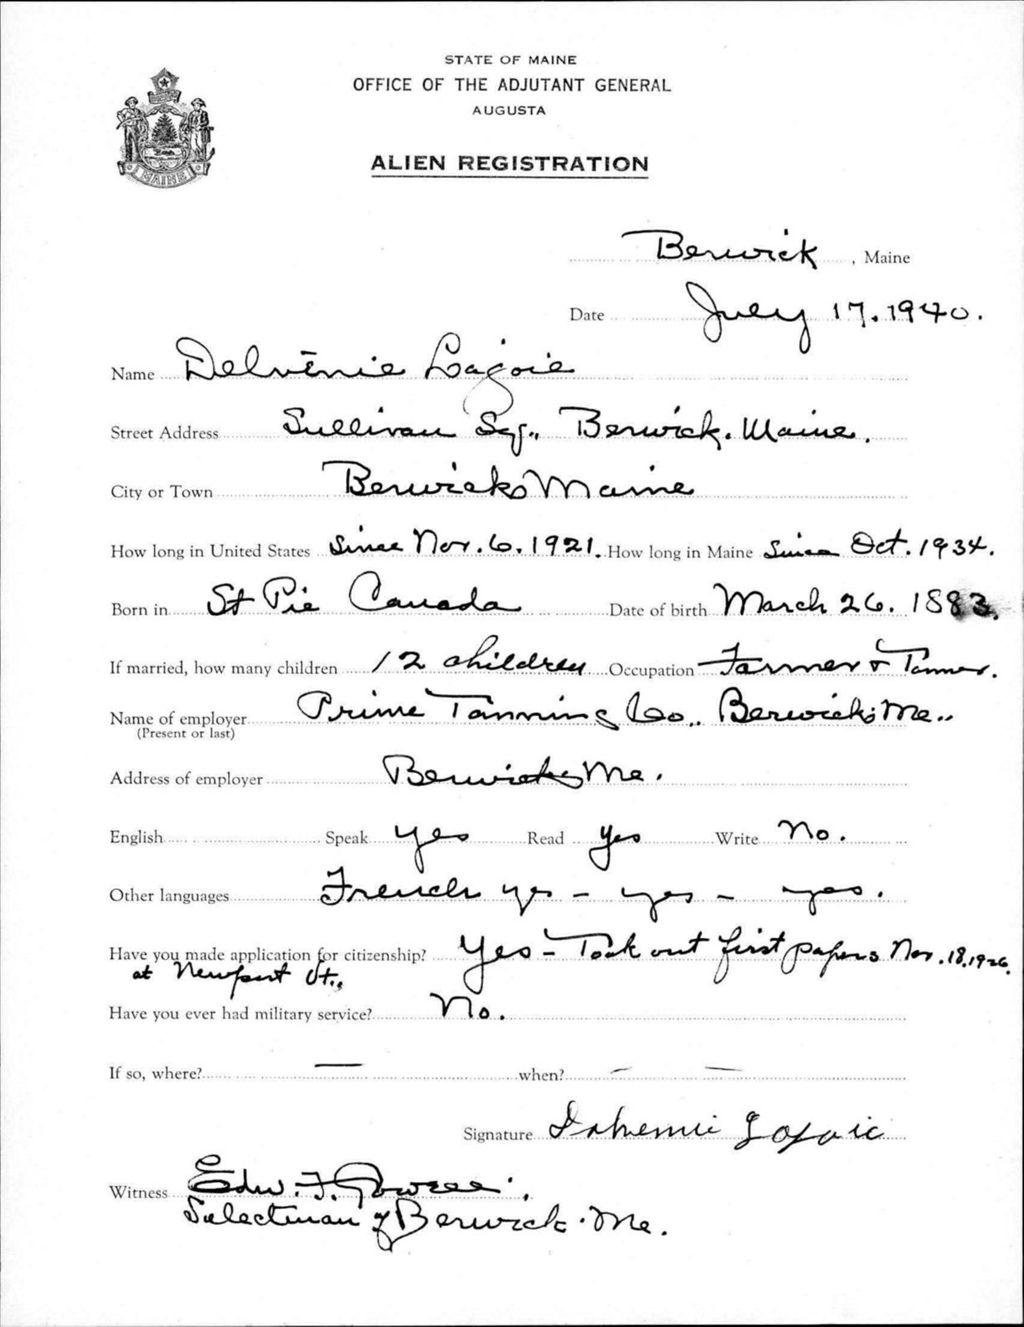 STATE OF MAINE
OFFICE OF THE ADJUTANT GENERAL
AUGUSTA
ALIEN REGISTRATION
MAINE
Berwick, Maine
Date July 17. 1940.
Name Delvenie Lajoie
Street Address Sullivan Sq., Berwick. Maine.
City or Town Berwick, Maine
How long in United States Since Nov. 6. 1921. How long in Maine Since Oct. 1934.
Born in St Pie Canada Date of birth March 26. 1883.
If married, how many children 12 children Occupation Farmer & Tanner.
Name of employer Prime Tanning Co., Berwick, Me..
(Present or last)
Address of employer Berwick, Me.
English Speak yes Read yes Write No.
Other languages French yes - yes - yes.
Have you made application for citizenship? Yes - Took out first papers Nov. 18, 1926
at Newport Vt.,
Have you ever had military service? No.
If so, where? — when? — —
Signature Lajoie
Witness Edw. F.
Selectman of Berwick. Me.